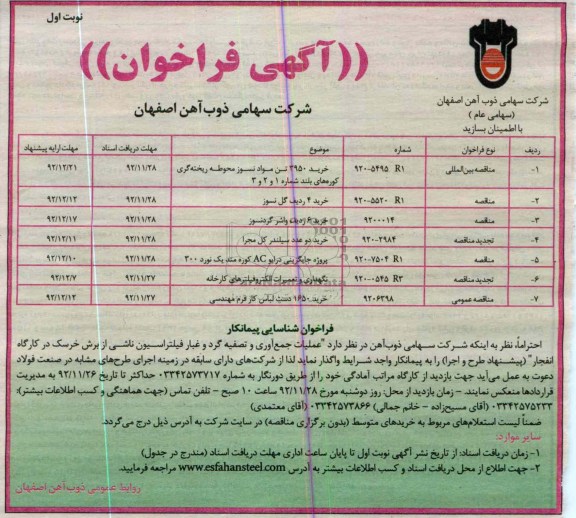 نوبت اول
((آگهی فراخوان))
شرکت سهامی ذوب آهن اصفهان
شرکت سهامی ذوب آهن اصفهان
(سهامی عام)
با اطمینان بسازید
ردیف نوع فراخوان شماره موضوع مهلت دریافت اسناد مهلت ارایه پیشنهاد
۱- مناقصه بین‌المللی ۹۲۰-۵۴۹۵ R1 خریـد ۳۹۵۰ تـن مـواد نسـوز محوطـه ریخته‌گری ۹۲/۱۱/۲۸ ۹۲/۱۲/۲۱
کوره‌های بلند شماره ۱ و ۲ و ۳
۲- مناقصه ۹۲۰-۵۵۲۰ R1 خرید ۴ ردیف گل نسوز ۹۲/۱۱/۲۸ ۹۲/۱۲/۱۲
۳- مناقصه ۹۲۰۰۰۱۴ خرید ۶ ردیف واشر گردنسوز ۹۲/۱۱/۲۸ ۹۲/۱۲/۱۷
۴- تجدید مناقصه ۹۲۰-۲۹۸۴ خرید دو عدد سیلندر کل مجرا ۹۲/۱۱/۲۸ ۹۲/۱۲/۱۱
۵- مناقصه ۹۲۰-۷۵۰۴ R1 پروژه جایگزینی درایو AC کوره متد یک نورد ۳۰۰ ۹۲/۱۱/۲۸ ۹۲/۱۲/۱۰
۶- تجدید مناقصه ۹۲۰-۰۵۴۵ R3 نگهداری و تعمیرات الکتروفیلترهای کارخانه ۹۲/۱۱/۲۷ ۹۲/۱۲/۷
۷- مناقصه عمومی ۹۲۰۶۳۹۸ خرید ۱۶۵۰ دست لباس کار فرم مهندسی ۹۲/۱۱/۲۷ ۹۲/۱۲/۱۳
فراخوان شناسایی پیمانکار
احتراماً، نظر به اینکه شرکت سهامی ذوب‌آهن در نظر دارد "عملیات جمع‌آوری و تصفیه گرد و غبار فیلتراسیون ناشی از برش خرسک در کارگاه
انفجار" (پیشنهاد طرح و اجرا) را به پیمانکار واجد شرایط واگذار نماید لذا از شرکت‌های دارای سابقه در زمینه اجرای طرح‌های مشابه در صنعت فولاد
دعوت به عمل می‌آید جهت بازدید از کارگاه مراتب آمادگی خود را از طریق دورنگار به شماره ۰۳۳۴۲۵۷۳۷۱۷ حداکثر تا تاریخ ۹۲/۱۱/۲۶ به مدیریت
قراردادها منعکس نمایند. - زمان بازدید از محل: روز دوشنبه مورخ ۹۲/۱۱/۲۸ ساعت ۱۰ صبح - تلفن تماس (جهت هماهنگی و کسب اطلاعات بیشتر):
۰۳۳۴۲۵۷۵۲۳۳ (آقای مسیح‌زاده - خانم جمالی) ۰۳۳۴۲۵۷۳۸۶۶ (آقای معتمدی)
ضمناً لیست استعلام‌های مربوط به خریدهای متوسط (بدون برگزاری مناقصه) در سایت شرکت به آدرس ذیل درج می‌گردد.
سایر موارد:
۱- زمان دریافت اسناد: از تاریخ نشر آگهی نوبت اول تا پایان ساعت اداری مهلت دریافت اسناد (مندرج در جدول)
۲- جهت اطلاع از محل دریافت اسناد و کسب اطلاعات بیشتر به آدرس www.esfahansteel.com مراجعه فرمایید.
روابط عمومی ذوب آهن اصفهان